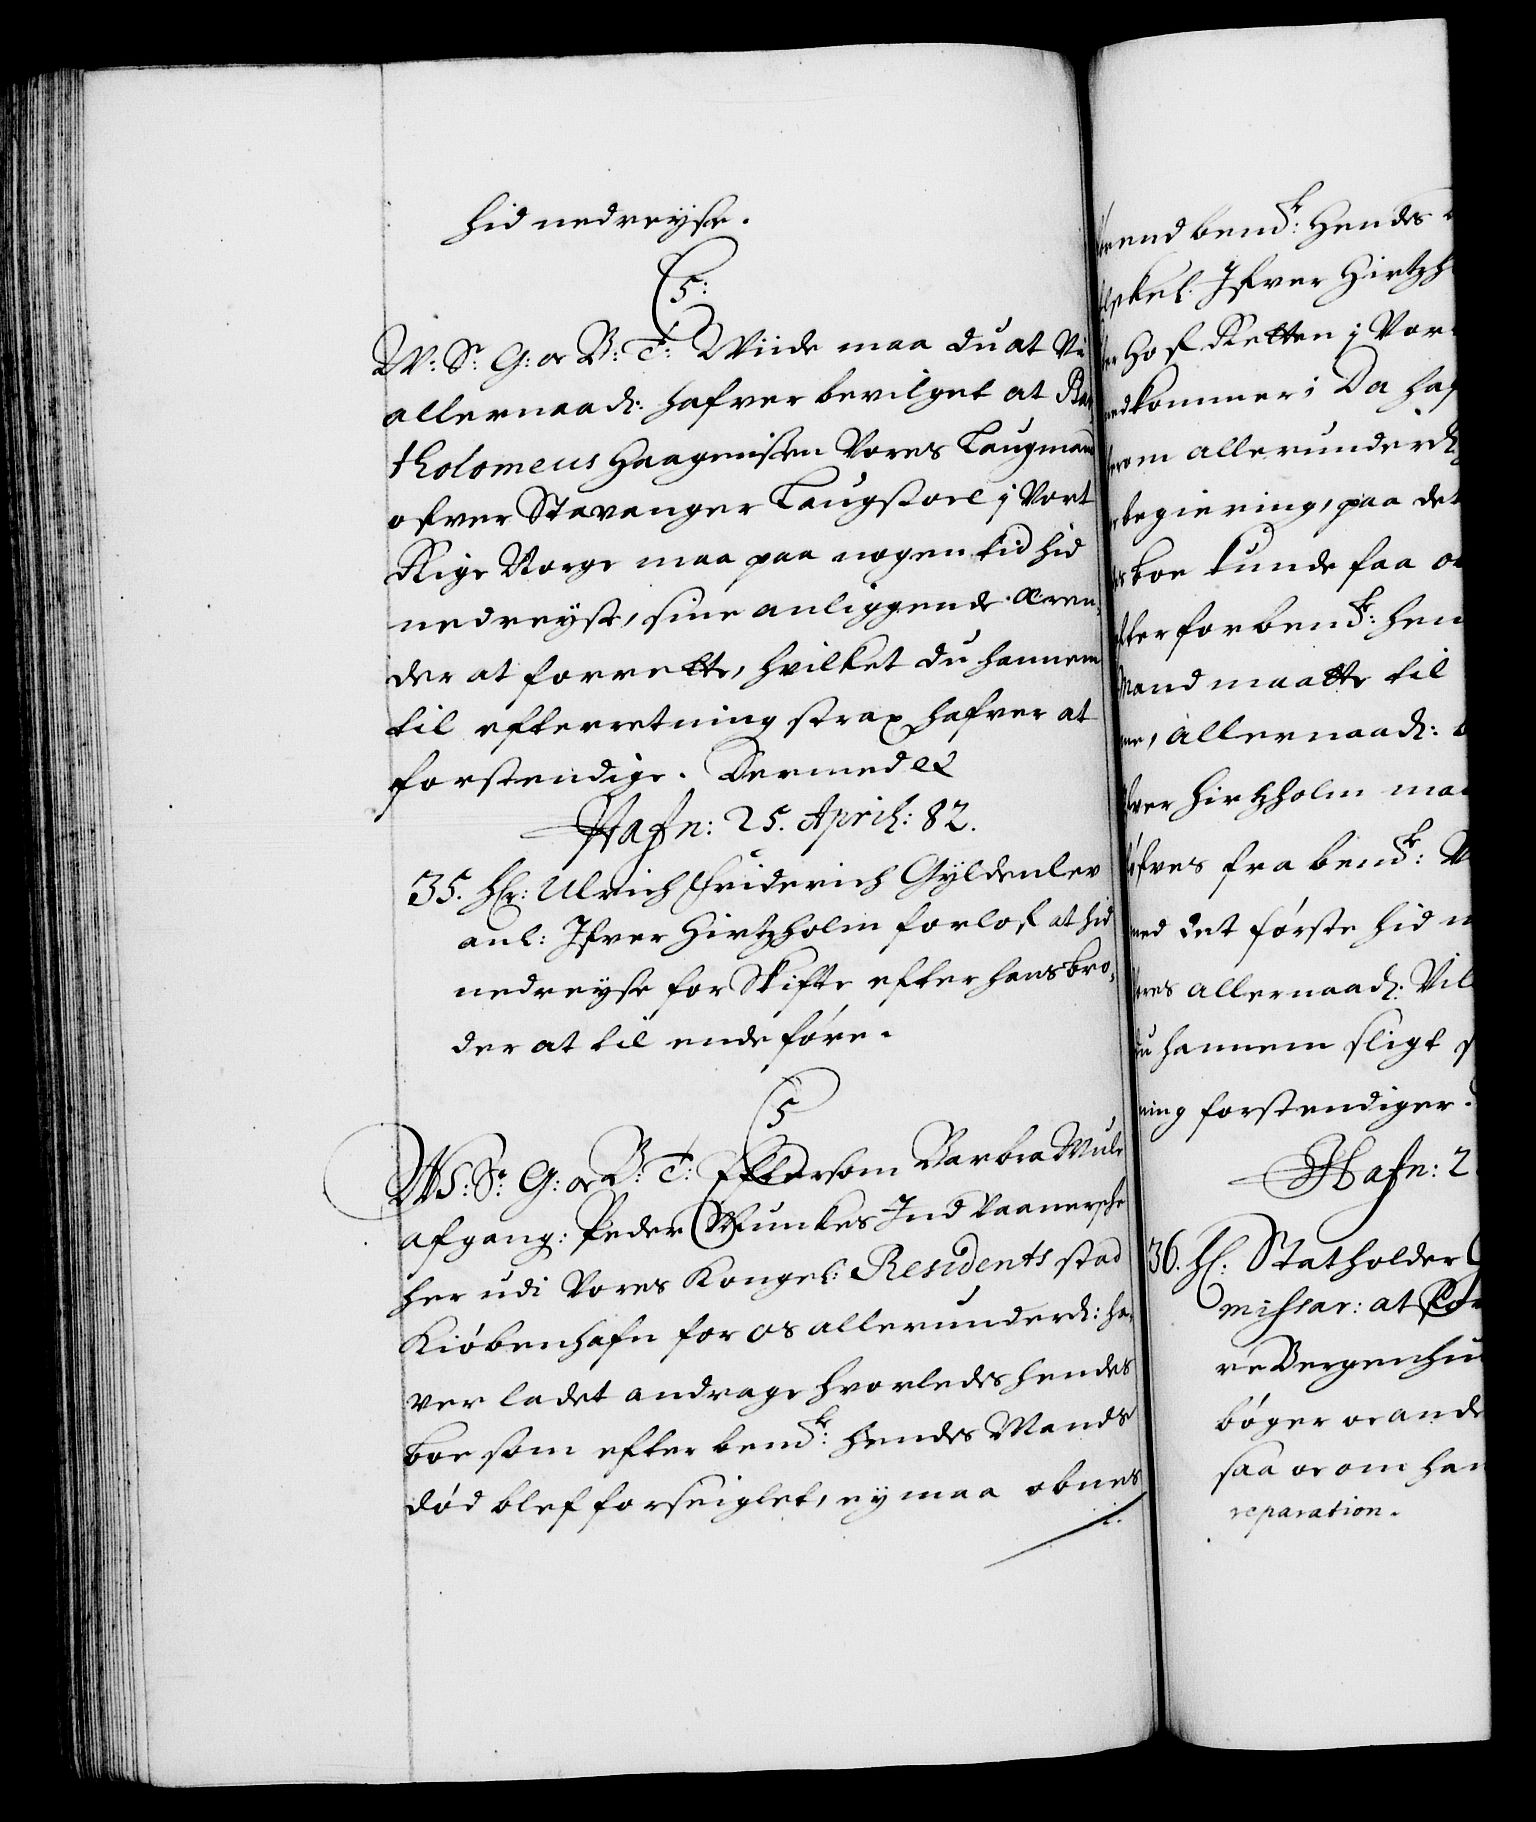 hid nedreyse.
C5:
W: S: G: oc B: T: Wiide maa du at Vi
allernaad: hafver bevilget at Bar
tholomeus Haagensen Vores Laugmand
ofver Stavanger Laugstoel i Vort
Rige Norge maa paa nogen tid hid
nedreyse, sine anliggende æren,
der at forrette, hvilket du hannem
til efterretning strax hafver at
forstendige. Dermed etc
Hafn: 25. April: 82.
35. Hr: Ulrich Friderich Gyldenlev
anl: Ifver Hirtzholm forlof at hid
nedreyse for Skifte efter hans bro,
der at til ende føre.
C5
W: S: G: oc B: T: Eftersom Barbra Mule
afgang: Peder Munkes Indvaanersche
her udi Vores Kongel: Residents stad
Kiøbenhafn for os allerunderd: ha,
ver ladet andrage hvorledes hendes
boe som efter bemte: hendes Mands
død blef forseiglet, ey maa obnes
i.
end bemte: Hendes
Ifver Hirtzh
Hof Retten i Vor
kommer; Da haf
om allerunderd:
begiering, paa det
boe kunde faa
ter forbemte: hen
Mand maatte til
allernaad:
ver Hirtzholm maa
fra bemte:
med det første hid n
allernaad: Vil
du hannem sligt
ning forstendiger.
Hafn: 2
36. Hr: Statholder
missar: at
re Bergenhu
bøger oc ande
saa oc om han
reparation.